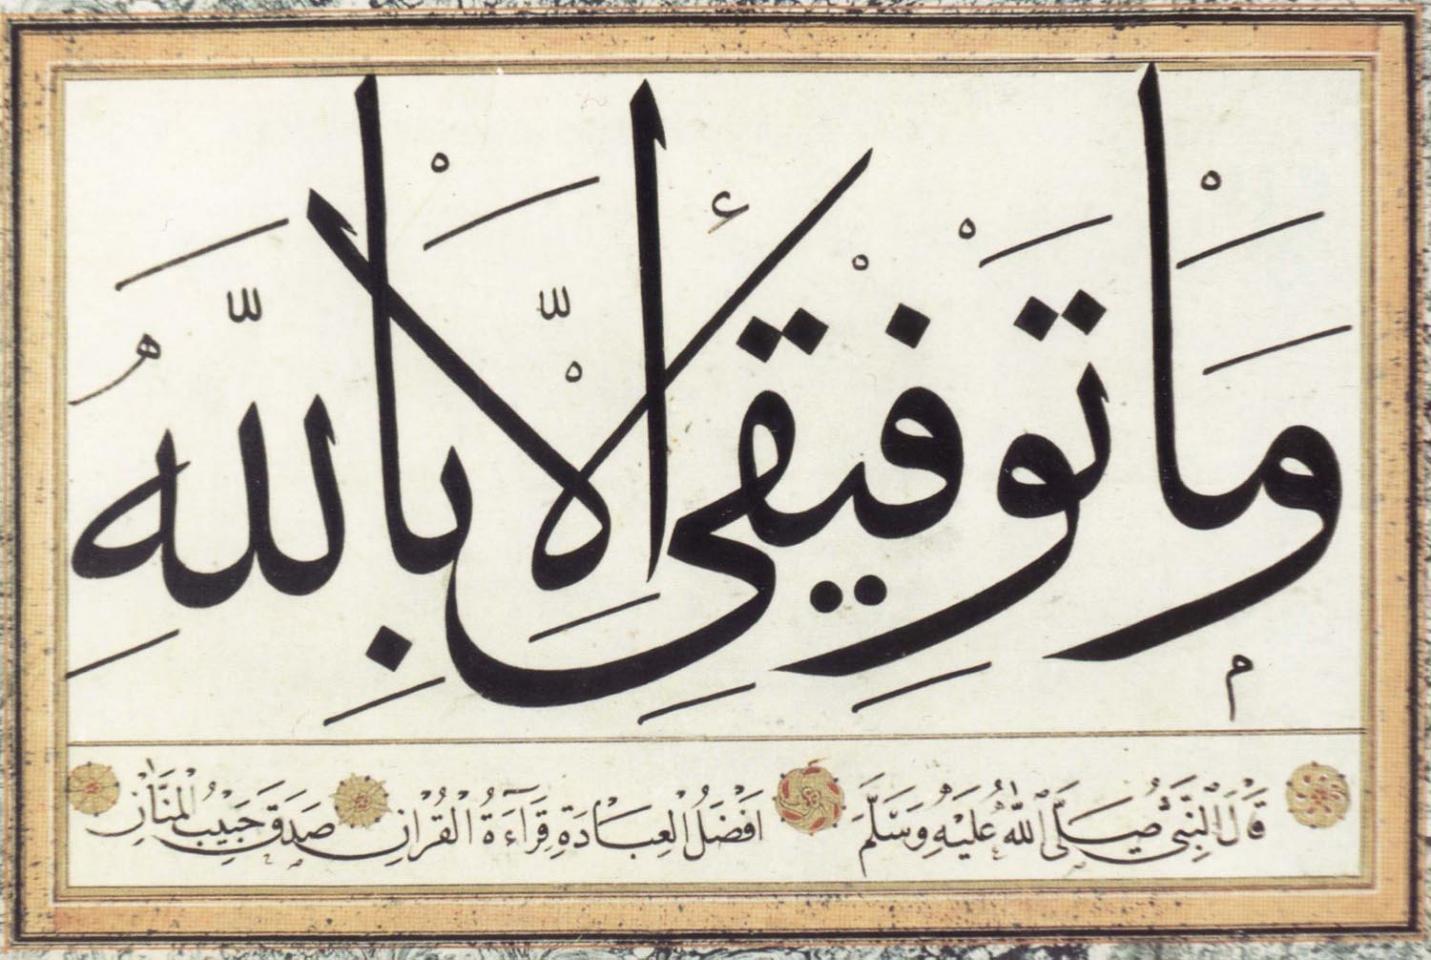 وَمَا تَوْفِيقِى إِلَّا بِاللَّهِ
قَالَ النَّبِىُّ صَلَّى اللّٰهُ عَلَيْهِ وَسَلَّمَ اَفْضَلُ الْعِبَادَةِ قِرَاءَةُ الْقُرْاٰنِ صَدَقَ حَبِيْبُ الْمَنَّانِ